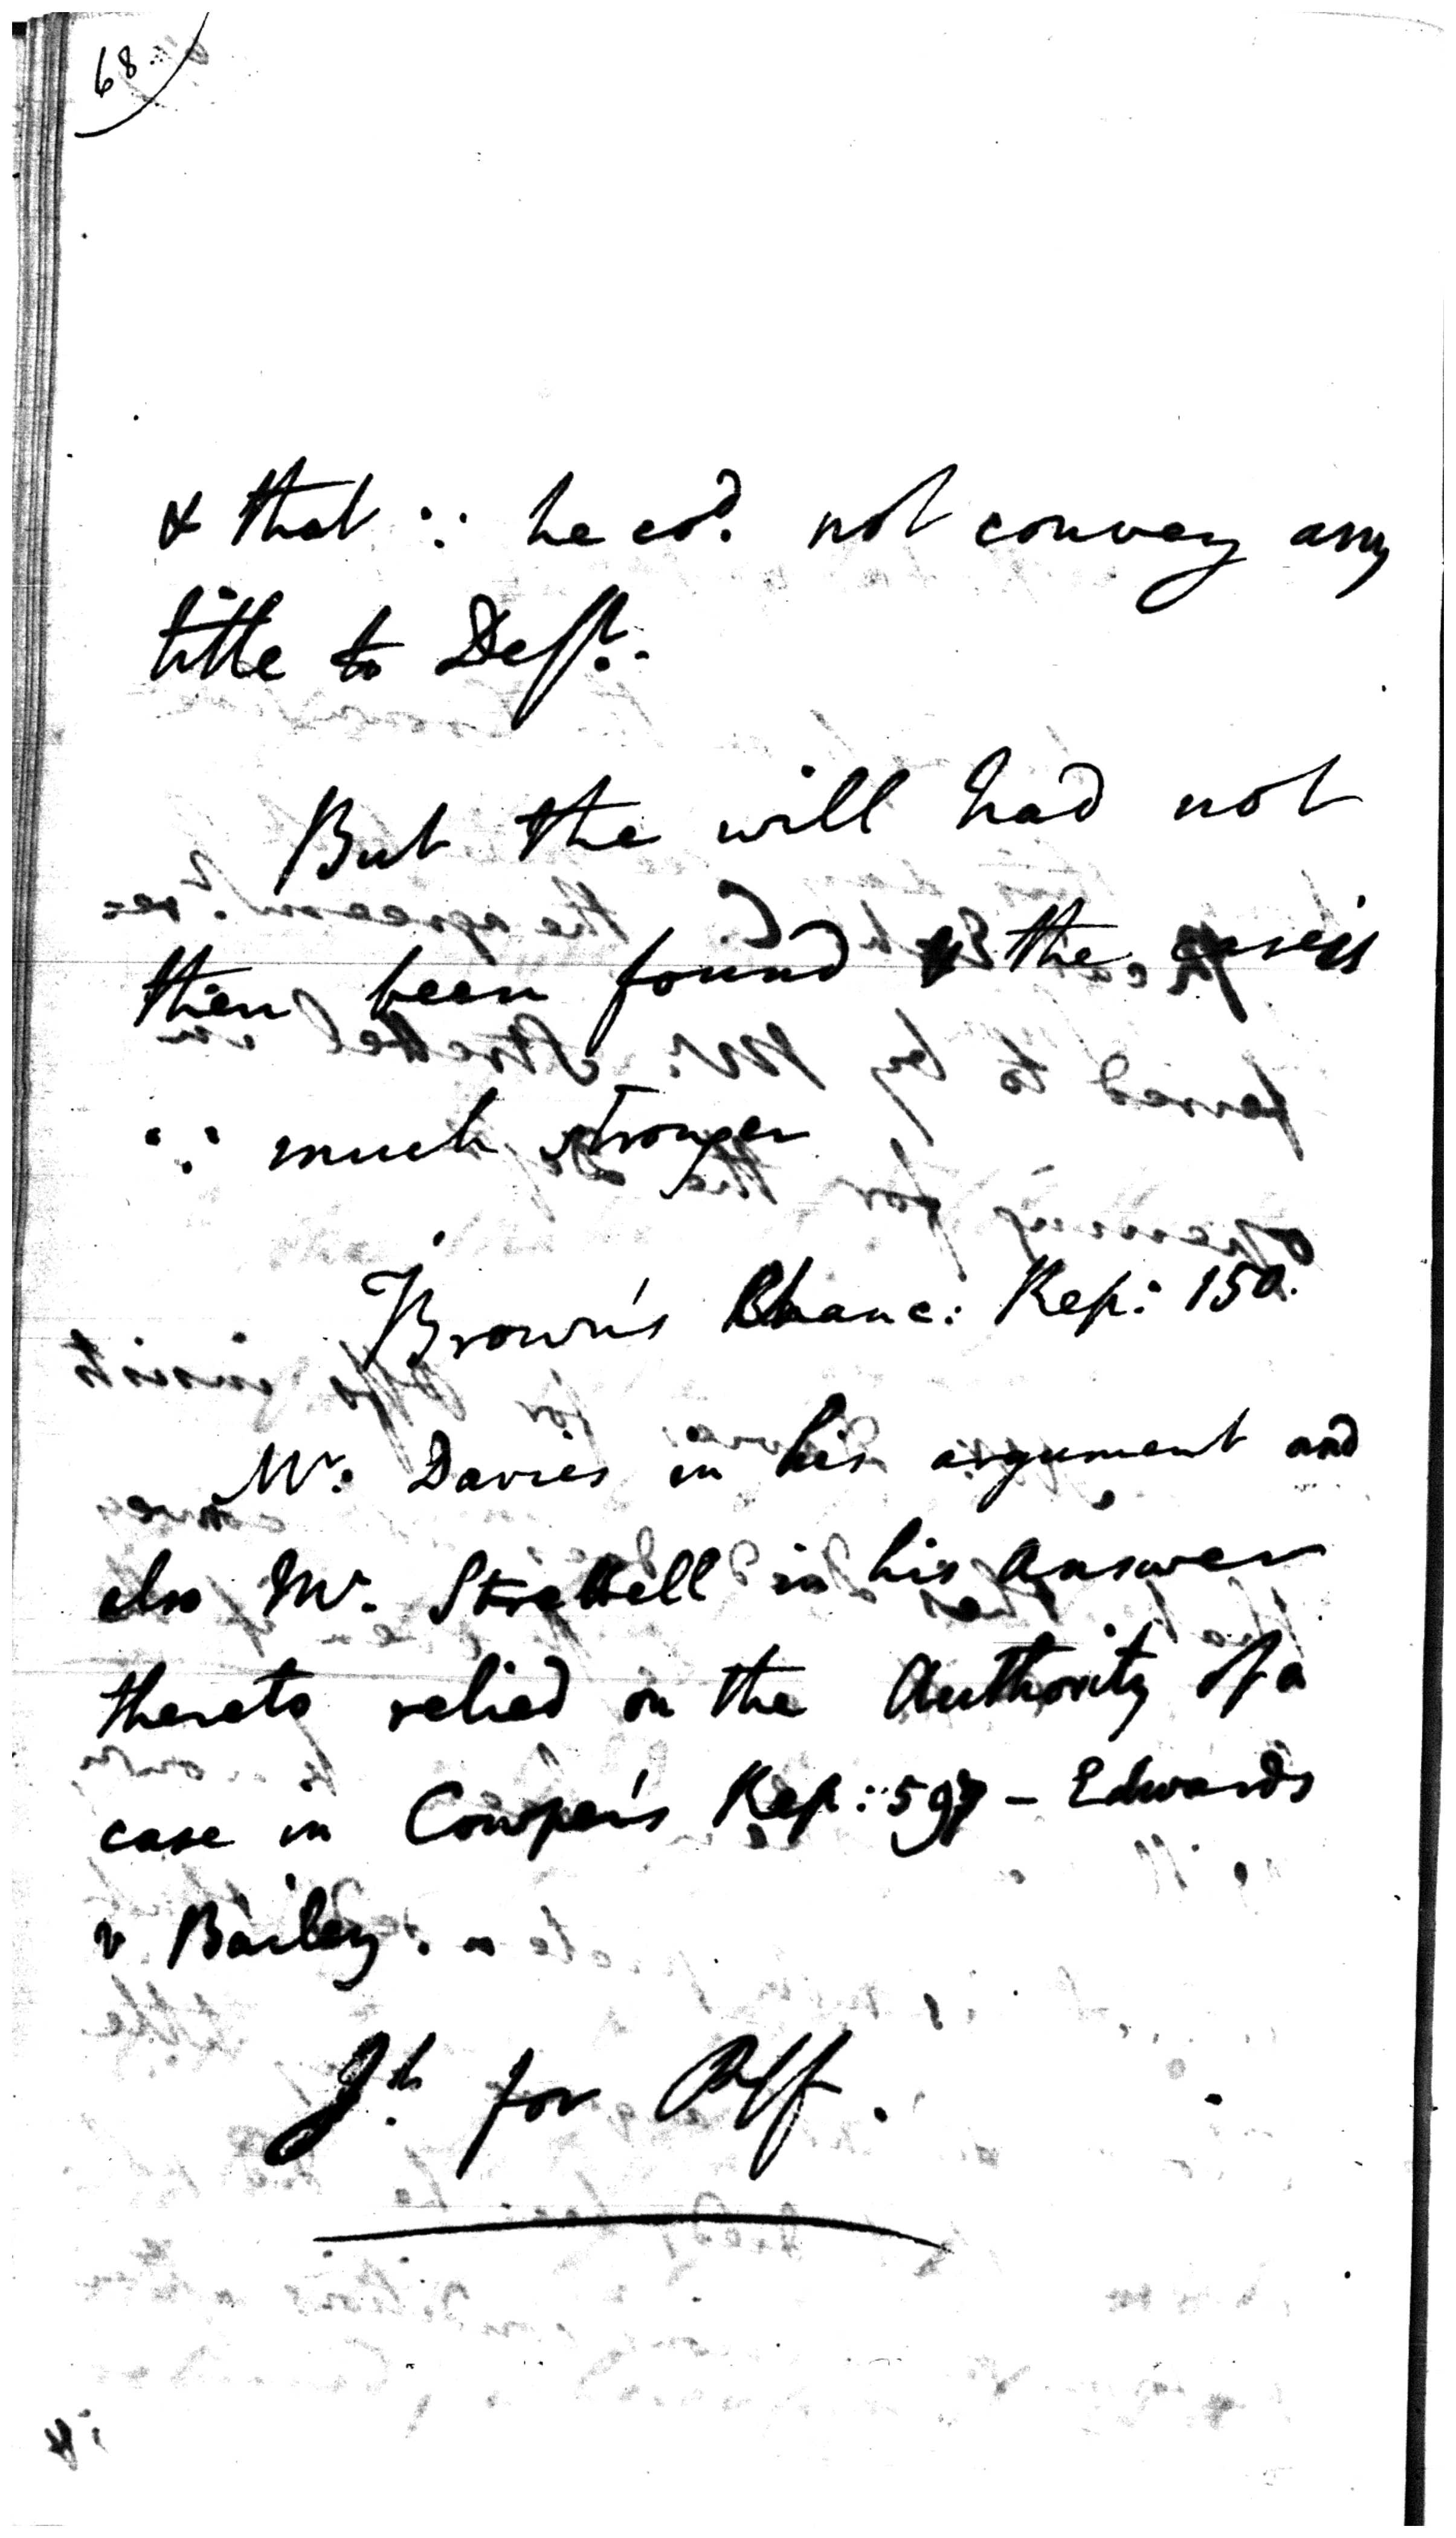 68
& that ∵ he cod. not convey any
title to Deft.
But the will had not
then been found & the case is
∵ much stronger
Brown's Chanc: Rep: 150.
Mr. Davies in his argument and
also Mr. Strettell in his answer
thereto relied on the Authority of a
case in Cowper's Rep: 597 - Edwards
v Bailey. -
Jt. for Plff.